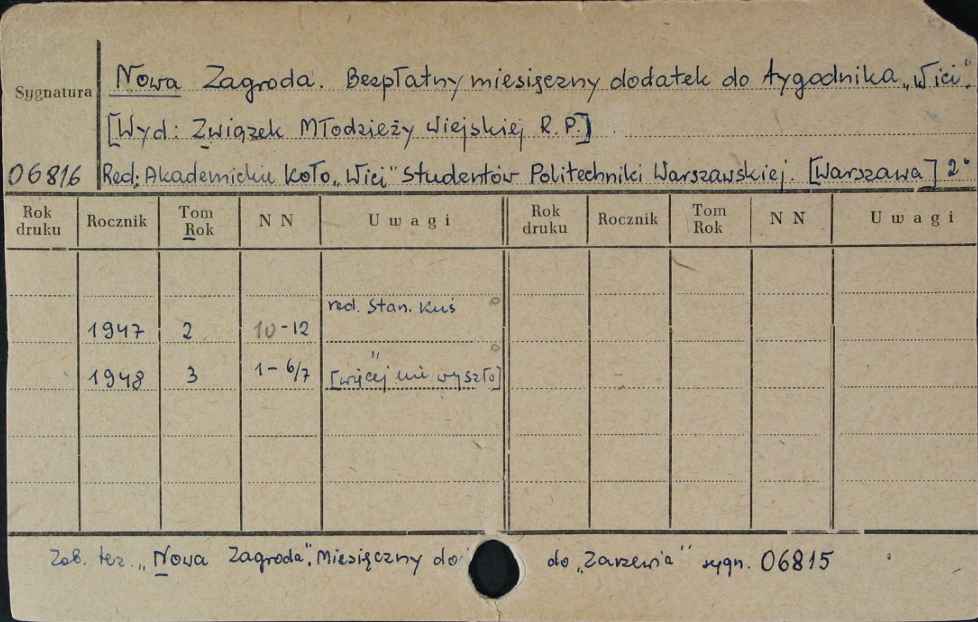 Sygnatura
Nowa Zagroda. Bezpłatny miesięczny dodatek do tygodnika „Wici".
[Wyd: Związek Młodzieży Wiejskiej R. P.]
06816 Red: Akademickie Koło „Wici" Studentów Politechniki Warszawskiej. [Warszawa] 2°
Rok druku Rocznik Tom Rok N N Uwagi Rok druku Rocznik Tom Rok N N Uwagi
red. Stan. Kuś
1947 2 10-12
"
1948 3 1-6/7 [więcej nie wyszło]
Zob. też. „Nowa Zagroda". Miesięczny do do „Zarzewia" sygn. 06815